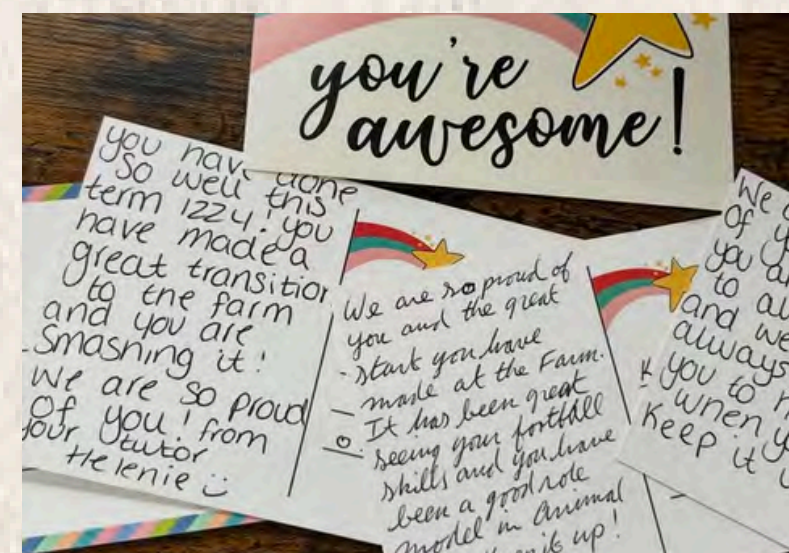 you're
awesome!
you have done
so well this
term Izzy! you
have made a
great transition
to the farm
and you are
smashing it!
We are so proud
of you! from
your tutor
Helenie
We are so proud of
you and the great
start you have
made at the Farm.
It has been great
seeing your football
skills and you have
been a good role
model in Animal
it up!
We
of
you
to
and we
always
you to
when
Keep it